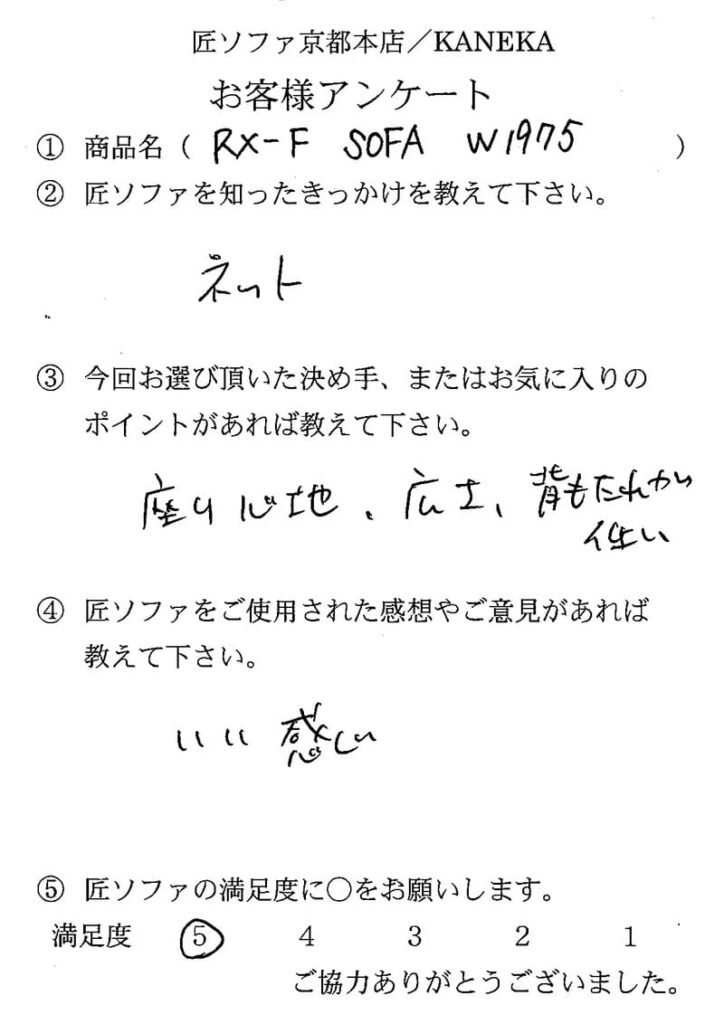 匠ソファ京都本店／KANEKA
お客様アンケート
① 商品名（ RX-F SOFA W1975 ）
② 匠ソファを知ったきっかけを教えて下さい。
ネット
③ 今回お選び頂いた決め手、またはお気に入りの
ポイントがあれば教えて下さい。
座り心地、広さ、背もたれが
低い
④ 匠ソファをご使用された感想やご意見があれば
教えて下さい。
いい感じ
⑤ 匠ソファの満足度に○をお願いします。
満足度 5 4 3 2 1
ご協力ありがとうございました。